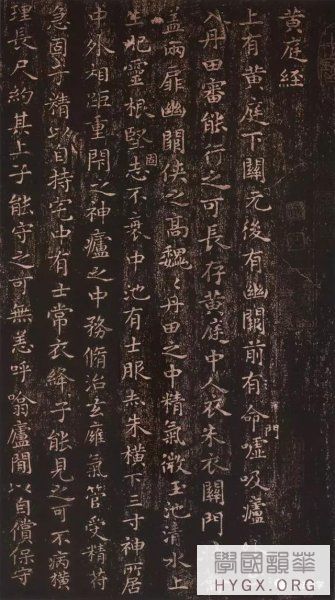 黄庭經
上有黄庭下關元後有幽闕前有命門噓吸廬
入丹田審能行之可長存黄庭中人衣朱衣關門
盖兩扉幽闕俠之高魏〻丹田之中精氣微玉池清水上
生肥靈根堅固志不衰中池有士服赤朱橫下三寸神所居
中外相距重閉之神廬之中務脩治玄㢕氣管受精符
急固子精以自持宅中有士常衣絳子能見之可不病橫
理長尺約其上子能守之可無恙呼噏廬間以自償保守
學國韻華
HYGX.ORG